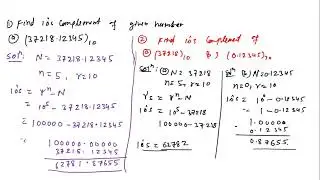 1) Find 10's complement of given number
① (37218.12345)10
Solⁿ: N = 37218.12345
n=5, r=10
10's = rⁿ-N
= 10⁵ - 37218.12345
= 100000 - 37218.12345
= 100000.00000
37218.12345
62781.87655
2) Find 10's Complement of
① (37218)10 & (0.12345)10
Solⁿ: ① N = 37218
n=5, r=10
r's = rⁿ-N
10's = 10⁵ - 37218
= 100000 - 37218
10's = 62782
N=0.12345
n=0, r=10
10's = 10⁰ - 0.12345
= 1 - 0.12345
= 1.00000
0.12345
0.87655